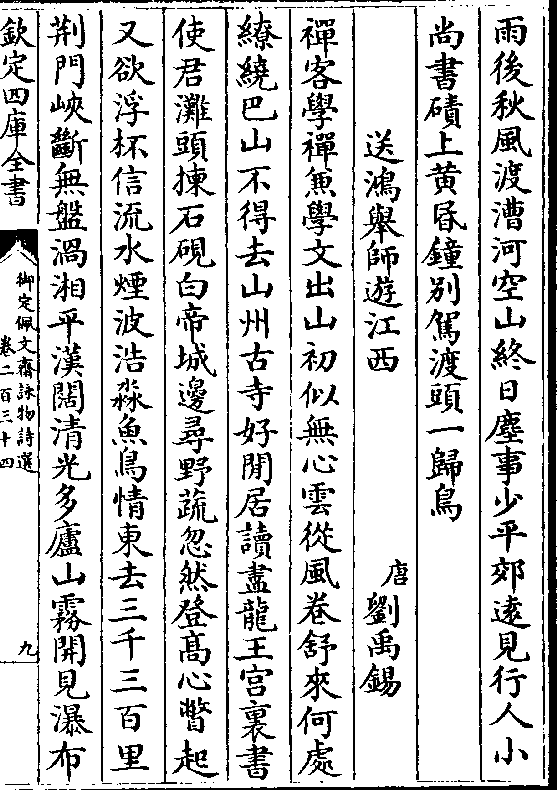 雨後秋風渡漕河空山終日塵事少平郊遠見行人小
尚書磧上黄昏鐘别駕渡頭一歸鳥
送鴻舉師遊江西
唐劉禹錫
禪客學禪兼學文出山初似無心雲從風卷舒來何處
繚繞巴山不得去山州古寺好閒居讀盡龍王宫裏書
使君灘頭揀石硯白帝城邊尋野蔬忽然登髙心瞥起
又欲浮杯信流水煙波浩淼魚鳥情東去三千三百里
荆門峽斷無盤渦湘平漢闊清光多廬山霧開見瀑布
欽定四庫全書
御定佩文齋詠物詩選
卷二百三十四
九